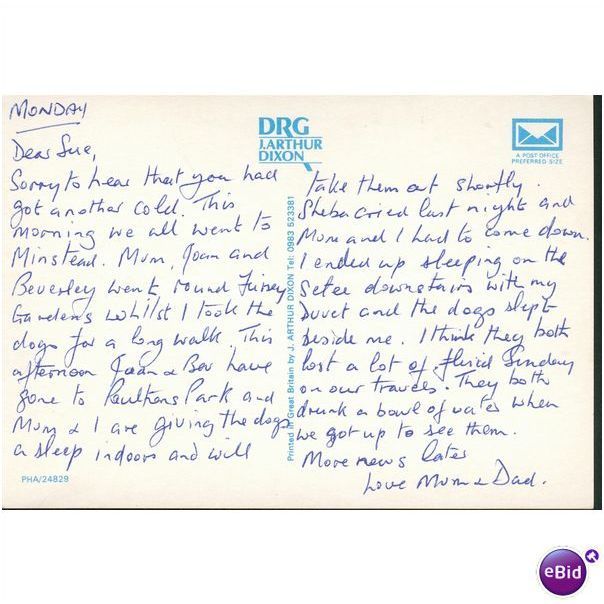 MONDAY
Dear Sue,
Sorry to hear that you had
got another cold. This
morning we all went to
Minstead. Mum, Joan and
Beverley went round Furzey
Gardens whilst I took the
dogs for a long walk. This
afternoon Joan & Bev have
gone to Paultons Park and
Mum & I are giving the dogs
a sleep indoors and will
PHA/24829
DRG
J.ARTHUR
DIXON
Printed in Great Britain by J. ARTHUR DIXON Tel: 0983 523381
A POST OFFICE
PREFERRED SIZE
take them out shortly.
Sheba cried last night and
Mum and I had to come down.
I ended up sleeping on the
Setee downstairs with my
Duvet and the dogs slept
beside me. I think they both
lost a lot of fluid Sunday
on our travels. They both
drank a bowl of water when
we got up to see them.
More news later
Love Mum & Dad.
eBid